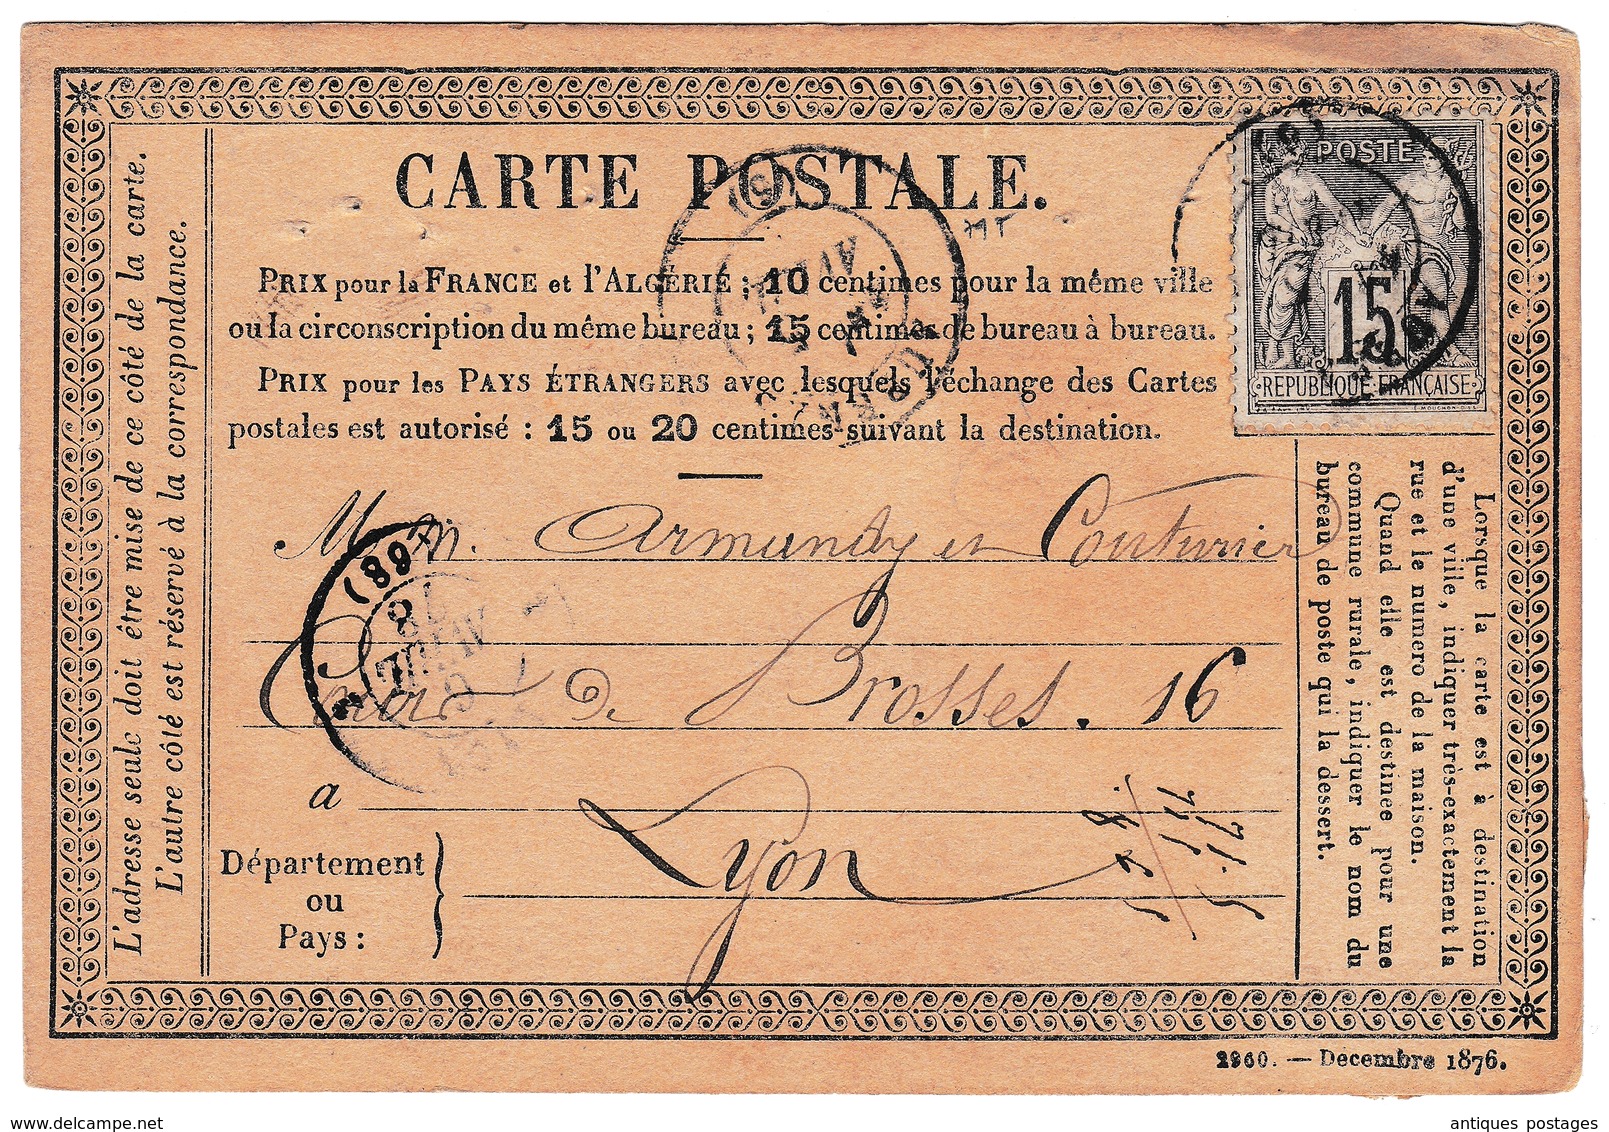 CARTE POSTALE.
PRIX pour la FRANCE et l'ALGÉRIE : 10 centimes pour la même ville
ou la circonscription du même bureau ; 15 centimes de bureau à bureau.
PRIX pour les PAYS ÉTRANGERS avec lesquels l'échange des Cartes
postales est autorisé : 15 ou 20 centimes suivant la destination.
L'adresse seule doit être mise de ce côté de la carte.
L'autre côté est réservé à la correspondance.
POSTE
15
REPUBLIQUE FRANCAISE
E. MOUCHON
M. m. Armandy et Couturier
Cours de Brosses. 16
a
Lyon
Département
ou
Pays :
(68)
AVRIL
78
Lorsque la carte est à destination
d'une ville, indiquer très-exactement la
rue et le numero de la maison.
Quand elle est destinee pour une
commune rurale, indiquer le nom du
bureau de poste qui la dessert.
2260. — Decembre 1876.
www.delcampe.net
antiques postages